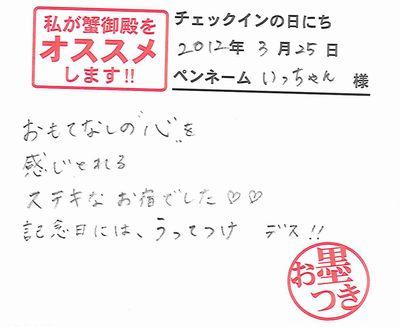 私が蟹御殿を
オススメ
します!!
チェックインの日にち
2012年 3月25日
ペンネーム いっちゃん 様
おもてなしの"心"を
感じとれる
ステキなお宿でした♡♡
記念日には、うってつけ デス!!
お墨
つき